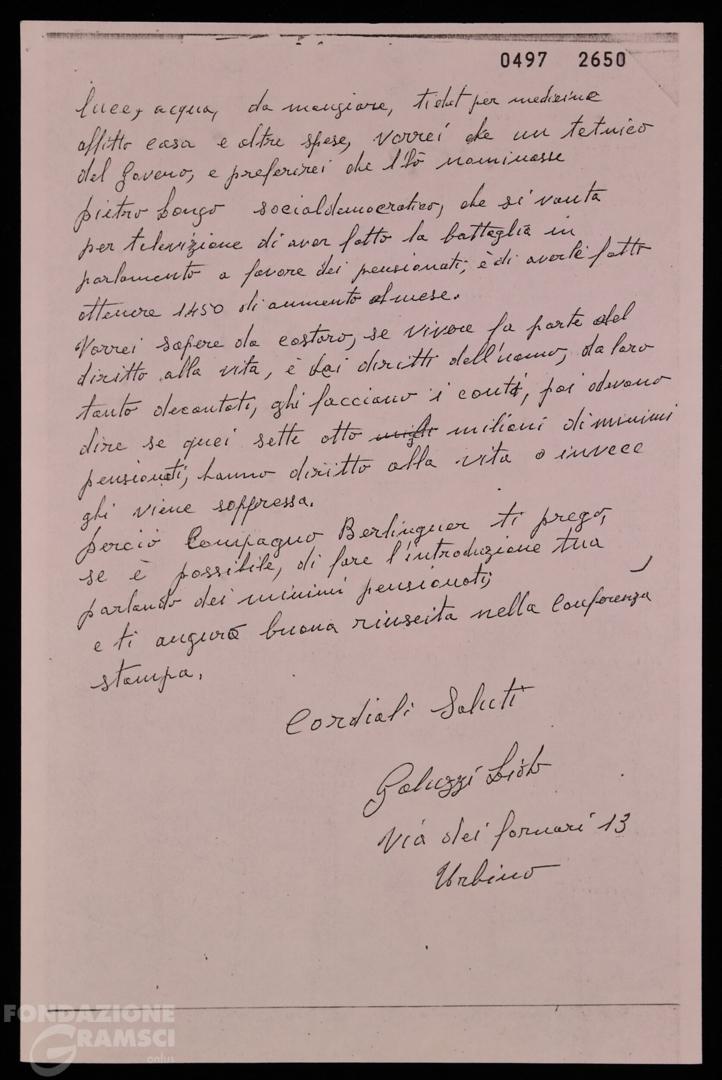 0497 2650
luce, acqua, da mangiare, tichet per medicine
affitto casa e altre spese, vorrei che un tetnico
del Goveno, e preferirei che lo nominasse
pietro Longo socialdemocratico, che si vanta
per televizione di aver fatto la battaglia in
parlamento a favore dei pensionati, è di averle fatto
ottenere 1450 di aumento al mese.
Vorrei sapere da costoro, se vivere fa parte del
diritto alla vita, è dai diritti dell'uomo, da loro
tanto decantati, ghi facciano i conti, poi devono
dire se quei sette otto milioni di minimi
pensionati, hanno diritto alla vita o invece
ghi viene soppressa.
perciò Compagno Berlinguer ti prego,
se è possibile, di fare l'introduzione tua
parlando dei minimi pensionati,
e ti auguro buona riuscita nella Conferenza
stampa.
Cordiali Saluti
Galuzzi
Via dei fornari 13
Urbino
FONDAZIONE
GRAMSCI
onlus